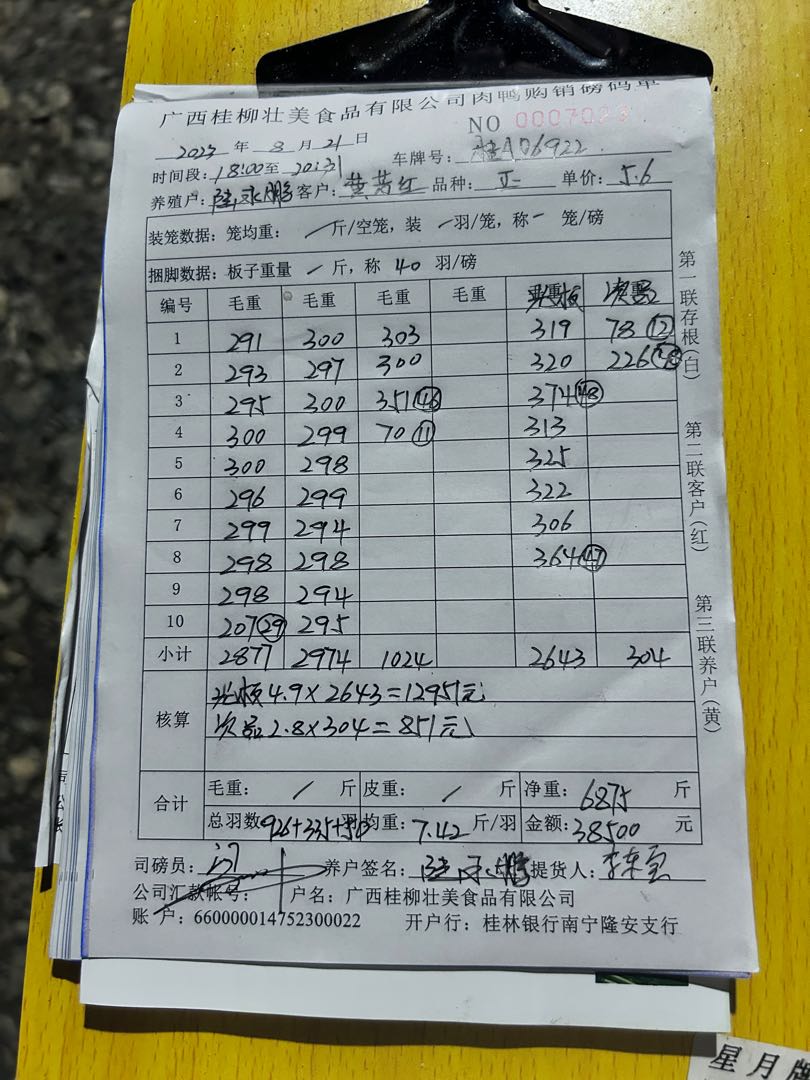 广西桂柳壮美食品有限公司肉鸭购销磅码单
NO 00070
2023 年 8 月 21 日 车牌号: 桂A06922
时间段: 18:00至 20:31
养殖户: 陆永鹏 客户: 黄芳红 品种: 正 单价: 5.6
装笼数据: 笼均重: / 斤/空笼, 装 / 羽/笼, 称 / 笼/磅
捆脚数据: 板子重量 / 斤, 称 40 羽/磅
编号 毛重 毛重 毛重 毛重
1 291 300 303 319 78 ⑫
2 293 297 300 320 226
3 295 300 351 46 374 48
4 300 299 70 ⑪ 313
5 300 298 325
6 296 299 322
7 299 294 306
8 298 298 364 47
9 298 294
10 207 29 295
小计 2877 2974 1024 2643 304
核算 光板 4.9×2643=12951元
次品 2.8×304=851元
合计 毛重: / 斤 皮重: / 斤 净重: 6875 斤
总羽数 926+335+50 羽 均重: 7.42 斤/羽 金额: 38500 元
司磅员: 养户签名: 陆永鹏 提货人:
公司汇款帐号: 户名: 广西桂柳壮美食品有限公司
账 户: 660000014752300022 开户行: 桂林银行南宁隆安支行
第一联存根(白)
第二联客户(红)
第三联养户(黄)
星月牌